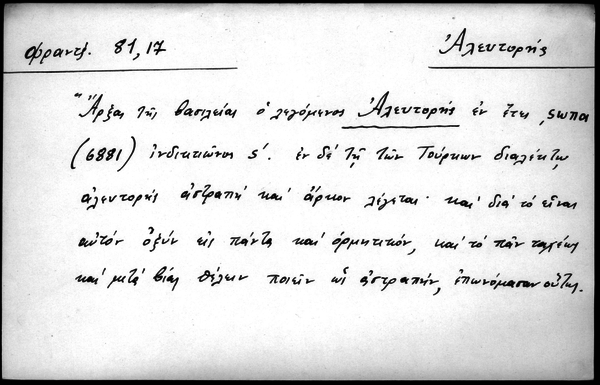 Φραντζ. 81,17
Ἀλευτορής
"Ἄρξας τῆς βασιλείας ὁ λεγόμενος Ἀλευτορής ἐν ἔτει ͵ςωπα
(6881) ἰνδικτιῶνος ς΄. ἐν δέ τῇ τῶν Τούρκων διαλέκτῳ
ἀλευτορής ἀστραπή καί ἄρκον λέγεται· καί διά τό εἶναι
αὐτόν ὀξύν εἰς πάντα καί ὁρμητικόν, καί τό πᾶν ταχέως
καί μετά βίας θέλειν ποιεῖν ὡς ἀστραπήν, ἐπωνόμασαν οὕτως.